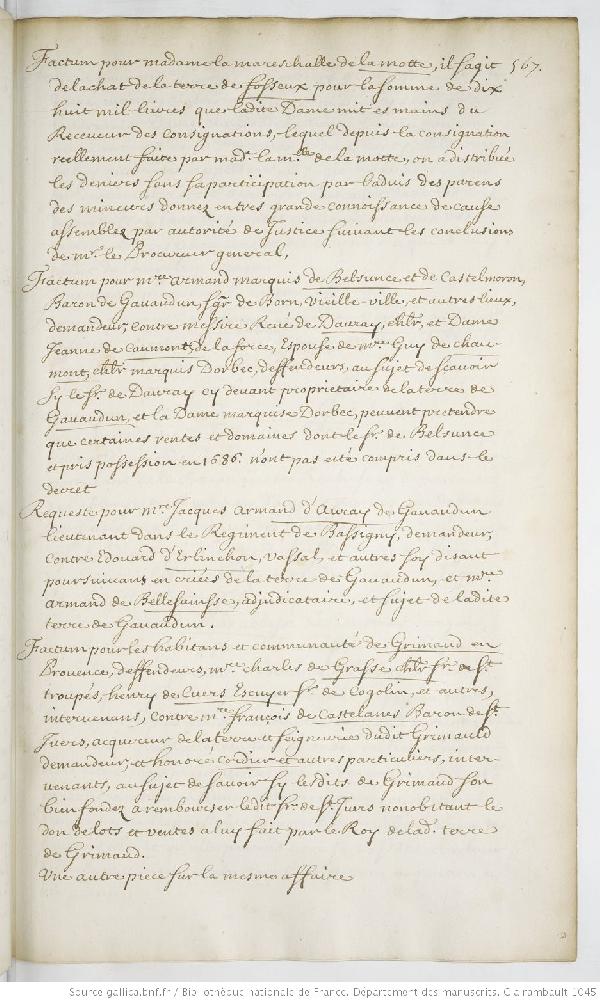 Factum pour madame la mareschalle de la motte, il s'agit 567.
de lachat de la terre de fosseux pour la somme de dix
huit mil livres que ladite Dame mit es mains du
Receveur des Consignations, lequel depuis la consignation
reellement faite par mad. la m.lle de la motte, on a distribué
les deniers sans sa participation par l'aduis des parens
des mineurs donnez en tres grande connoissance de cause
assemblez par autorité de Justice suiuant les conclusions
de m.r le Procureur general,
Factum pour m.re armand marquis de Belsunce et de Castelmoron,
Baron de Gauaudun, sgr de Born, vieille-ville, et autres lieux,
demandeur, contre messire René de Dauray, chlr, et Dame
Jeanne de Caumont, de la force, Espouse de m.re Guy de chau-
mont, chlr marquis Dorbec, deffendeurs, au sujet de scauoir
sy le sr. de Dauray cy deuant proprietaire de la terre de
Gauaudun, et la Dame marquise Dorbec, peuuent pretendre
que certaines rentes et domaines dont le sr. de Belsunce
a pris possession en 1686. n'ont pas esté compris dans le
decret
Requeste pour m.re Jacques armand d'Auray de Gauaudun
lieutenant dans le Regiment de Bassigny, demandeur,
contre Edouard d'Erlinchon, vassal, et autres soy disant
poursuiuans en criées de la terre de Gauaudun, et m.re
armand de Bellesuinsse, adjudicataire, et sujet de ladite
terre de Gauaudun.
Factum pour les habitans et communauté de Grimaud en
Prouence, deffendeurs, m.re charles de Grasse chlr sr. de St
troupés, henry de Cuers Escuyer sr. de Cogolin, et autres,
interuenans, contre m.re françois de Castelanes Baron de St.
Juers, acquereur de la terre et seigneurie dudit Grimauld
demandeur, et honoré cordier et autres particuliers, inter-
uenants, au sujet de sauoir sy lesdits de Grimaud son
bien fondez a rembourser ledit sr. de St. Juers nonobstant le
don de lots et ventes a luy fait par le Roy de lad. terre
de Grimaud.
Vne autre piece sur la mesme affaire
Source gallica.bnf.fr / Bibliothèque nationale de France. Département des manuscrits. Clairambault 1045